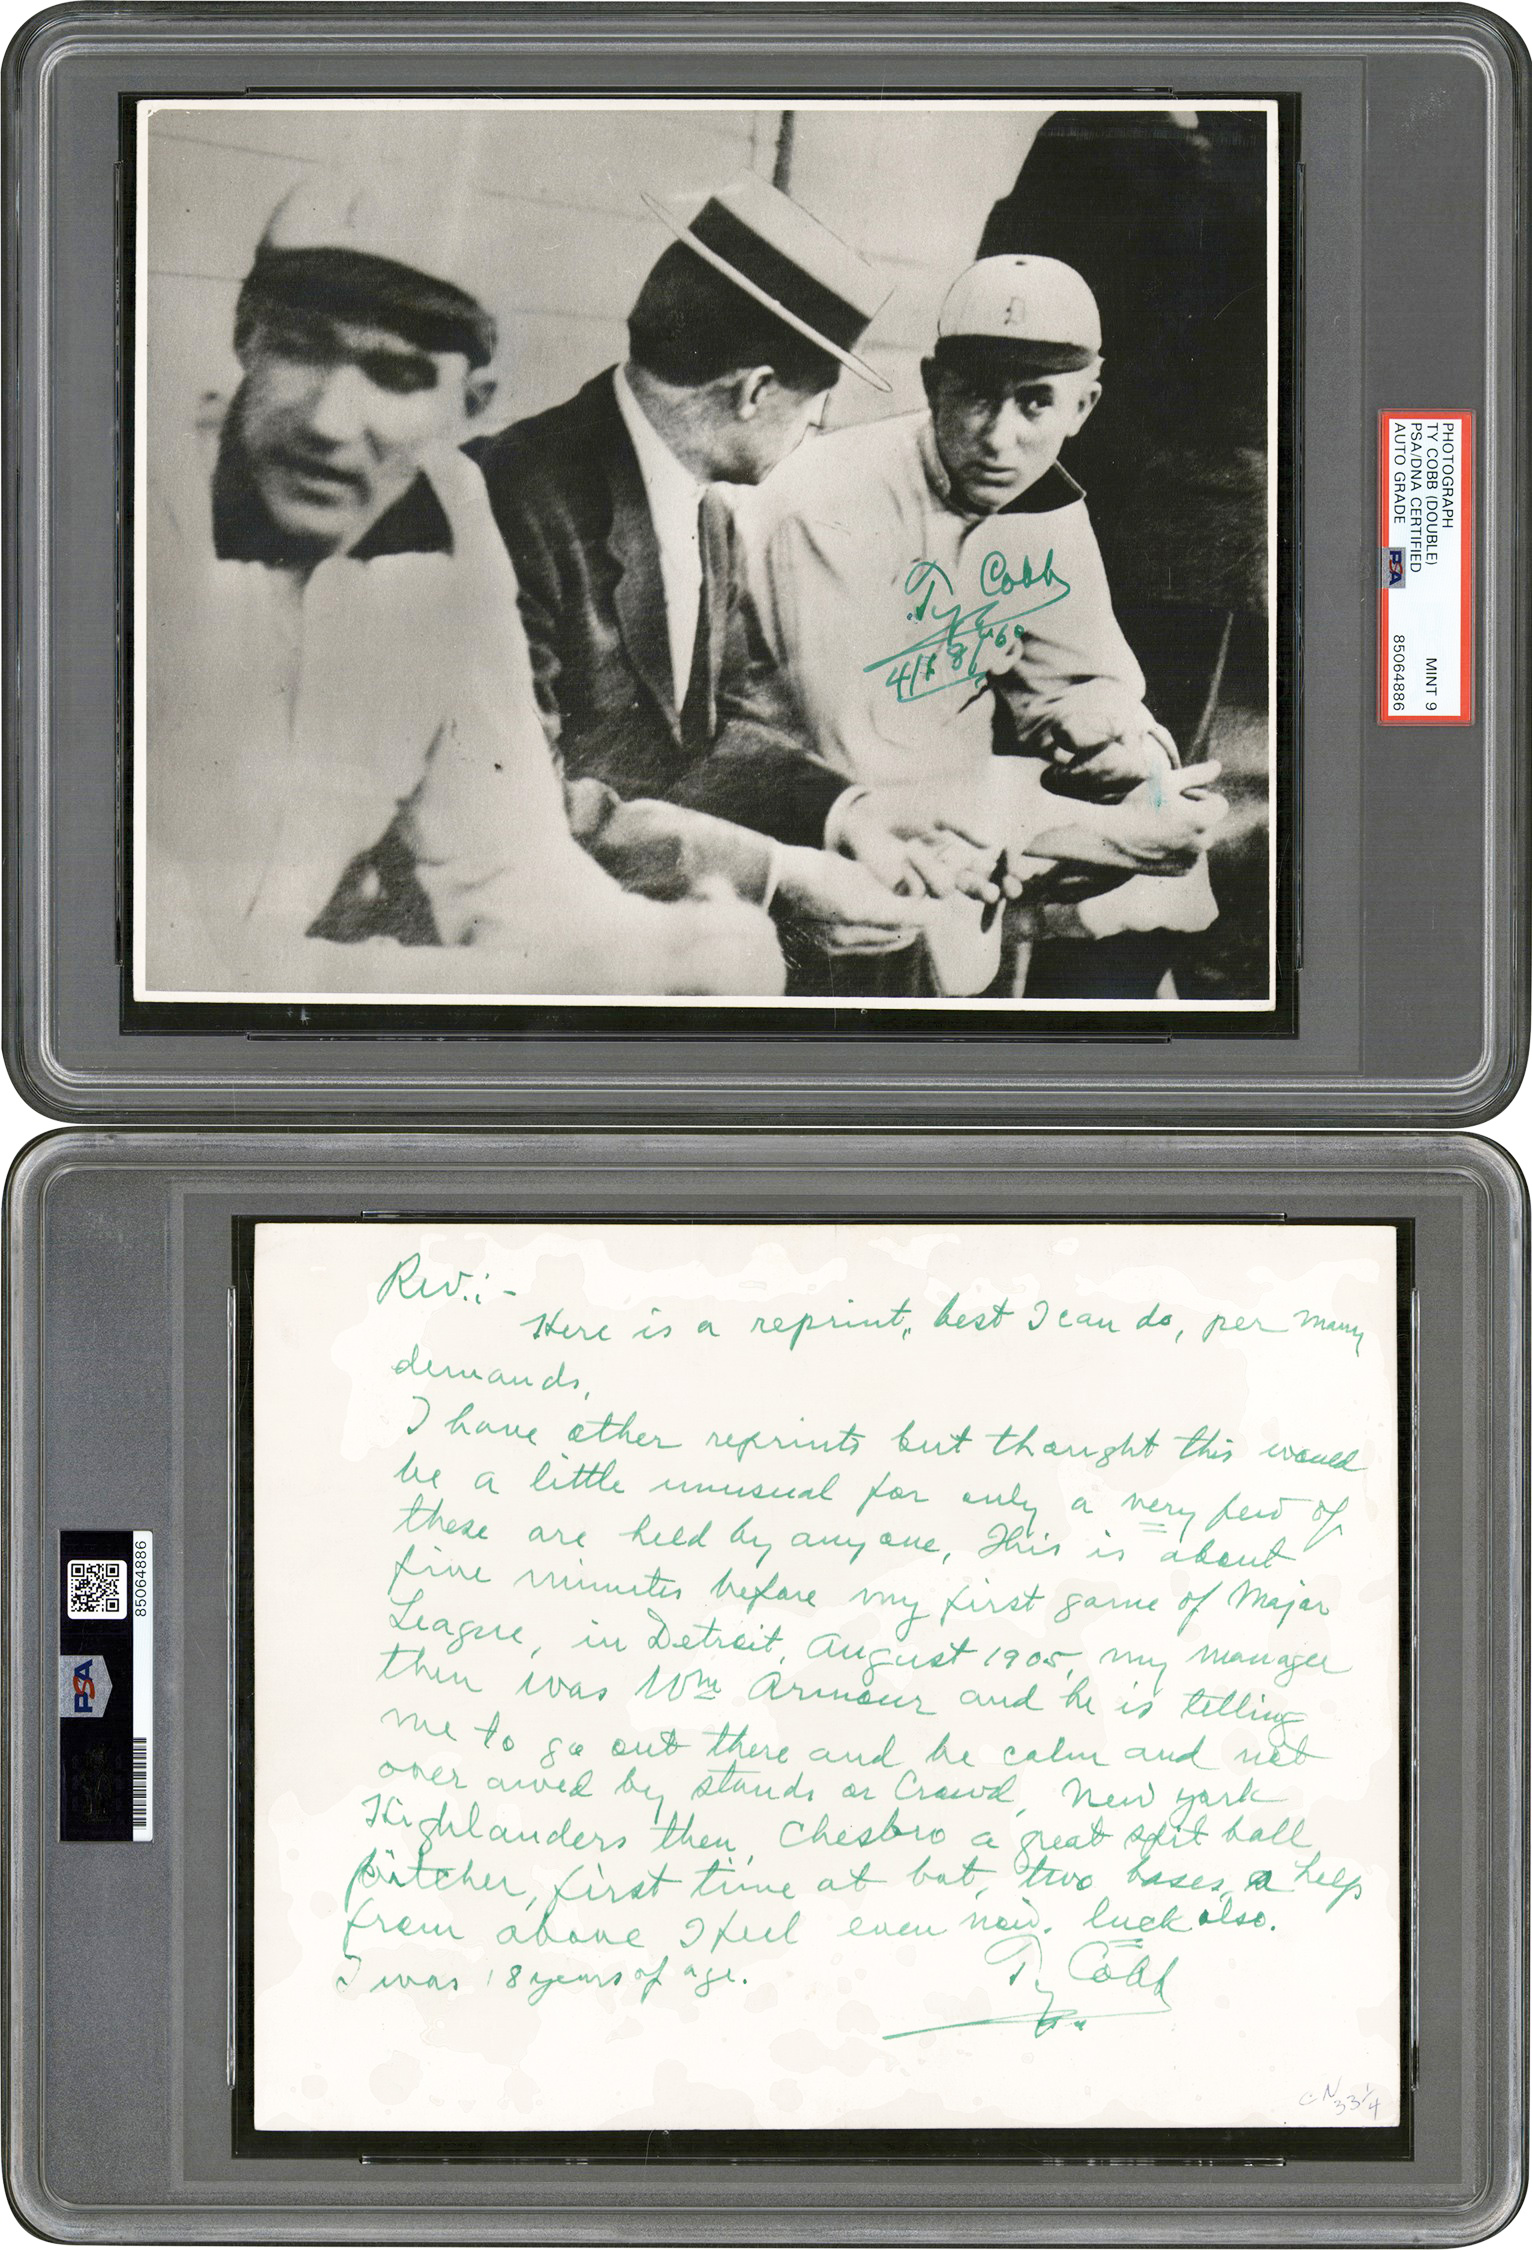 PHOTOGRAPH
TY COBB (DOUBLE)
PSA/DNA CERTIFIED
AUTO GRADE
MINT 9
85064886
PSA
D
Ty Cobb
4/18/60
Rev.:-
Here is a reprint, best I can do, per many
demands,
I have other reprints but thought this would
be a little unusual for only a very few of
these are held by anyone, This is about
five minutes before my first game of Major
League, in Detroit, August 1905, my manager
then was Wm Armour and he is telling
me to go out there and be calm and not
over awed by stands or Crowd, New York
Highlanders then, Chesbro a great spit ball
pitcher, first time at bat, two bases, a help
from above I feel even now. luck also.
I was 18 years of age.
Ty Cobb
CN 33 1/4
85064886
PSA